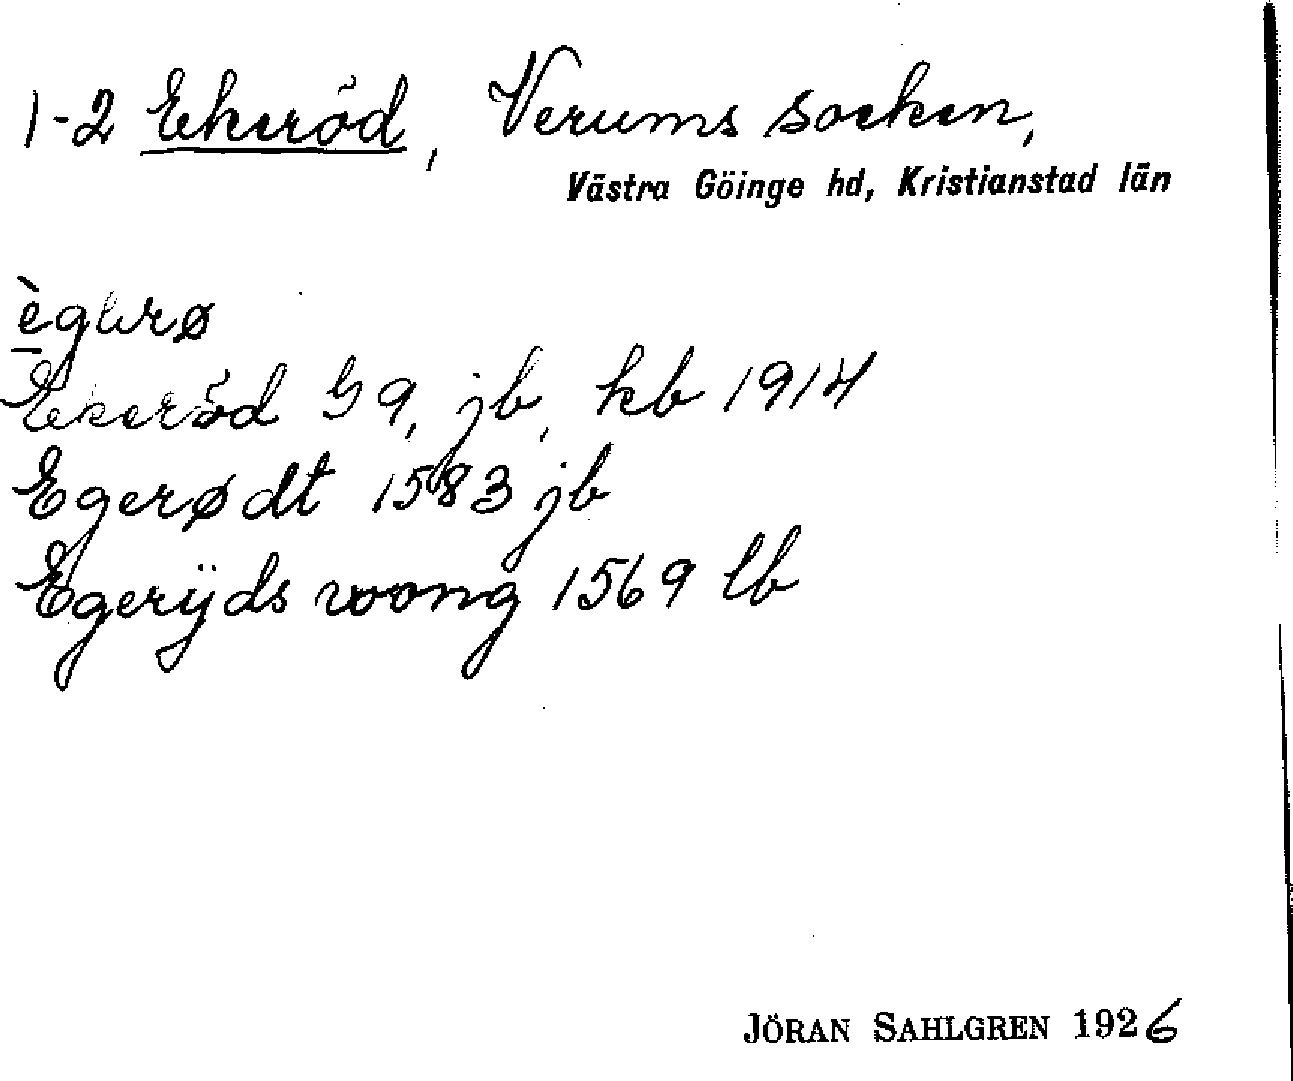 1-2 Ekeröd, Verums socken,
Västra Göinge hd, Kristianstad län
Ekeröd G9, jb, kb 1914
Egerødt 1583 jb
Egerÿds woong 1569 lb
JÖRAN SAHLGREN 1926